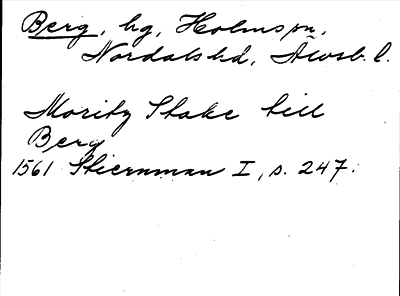 Berg, hg, Holms sn,
Nordals hd, Älvsb. l.
Moritz Stake till
Berg
1561 Stiernman I, s. 247.